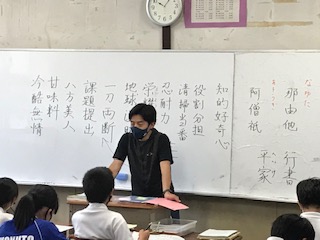 なゆた
那由他
行書
阿僧祇
平家
知的好奇心
役割分担
清掃当番
忍耐力
地球
一刀両断
課題提出
八方美人
甘味料
冷酷無情